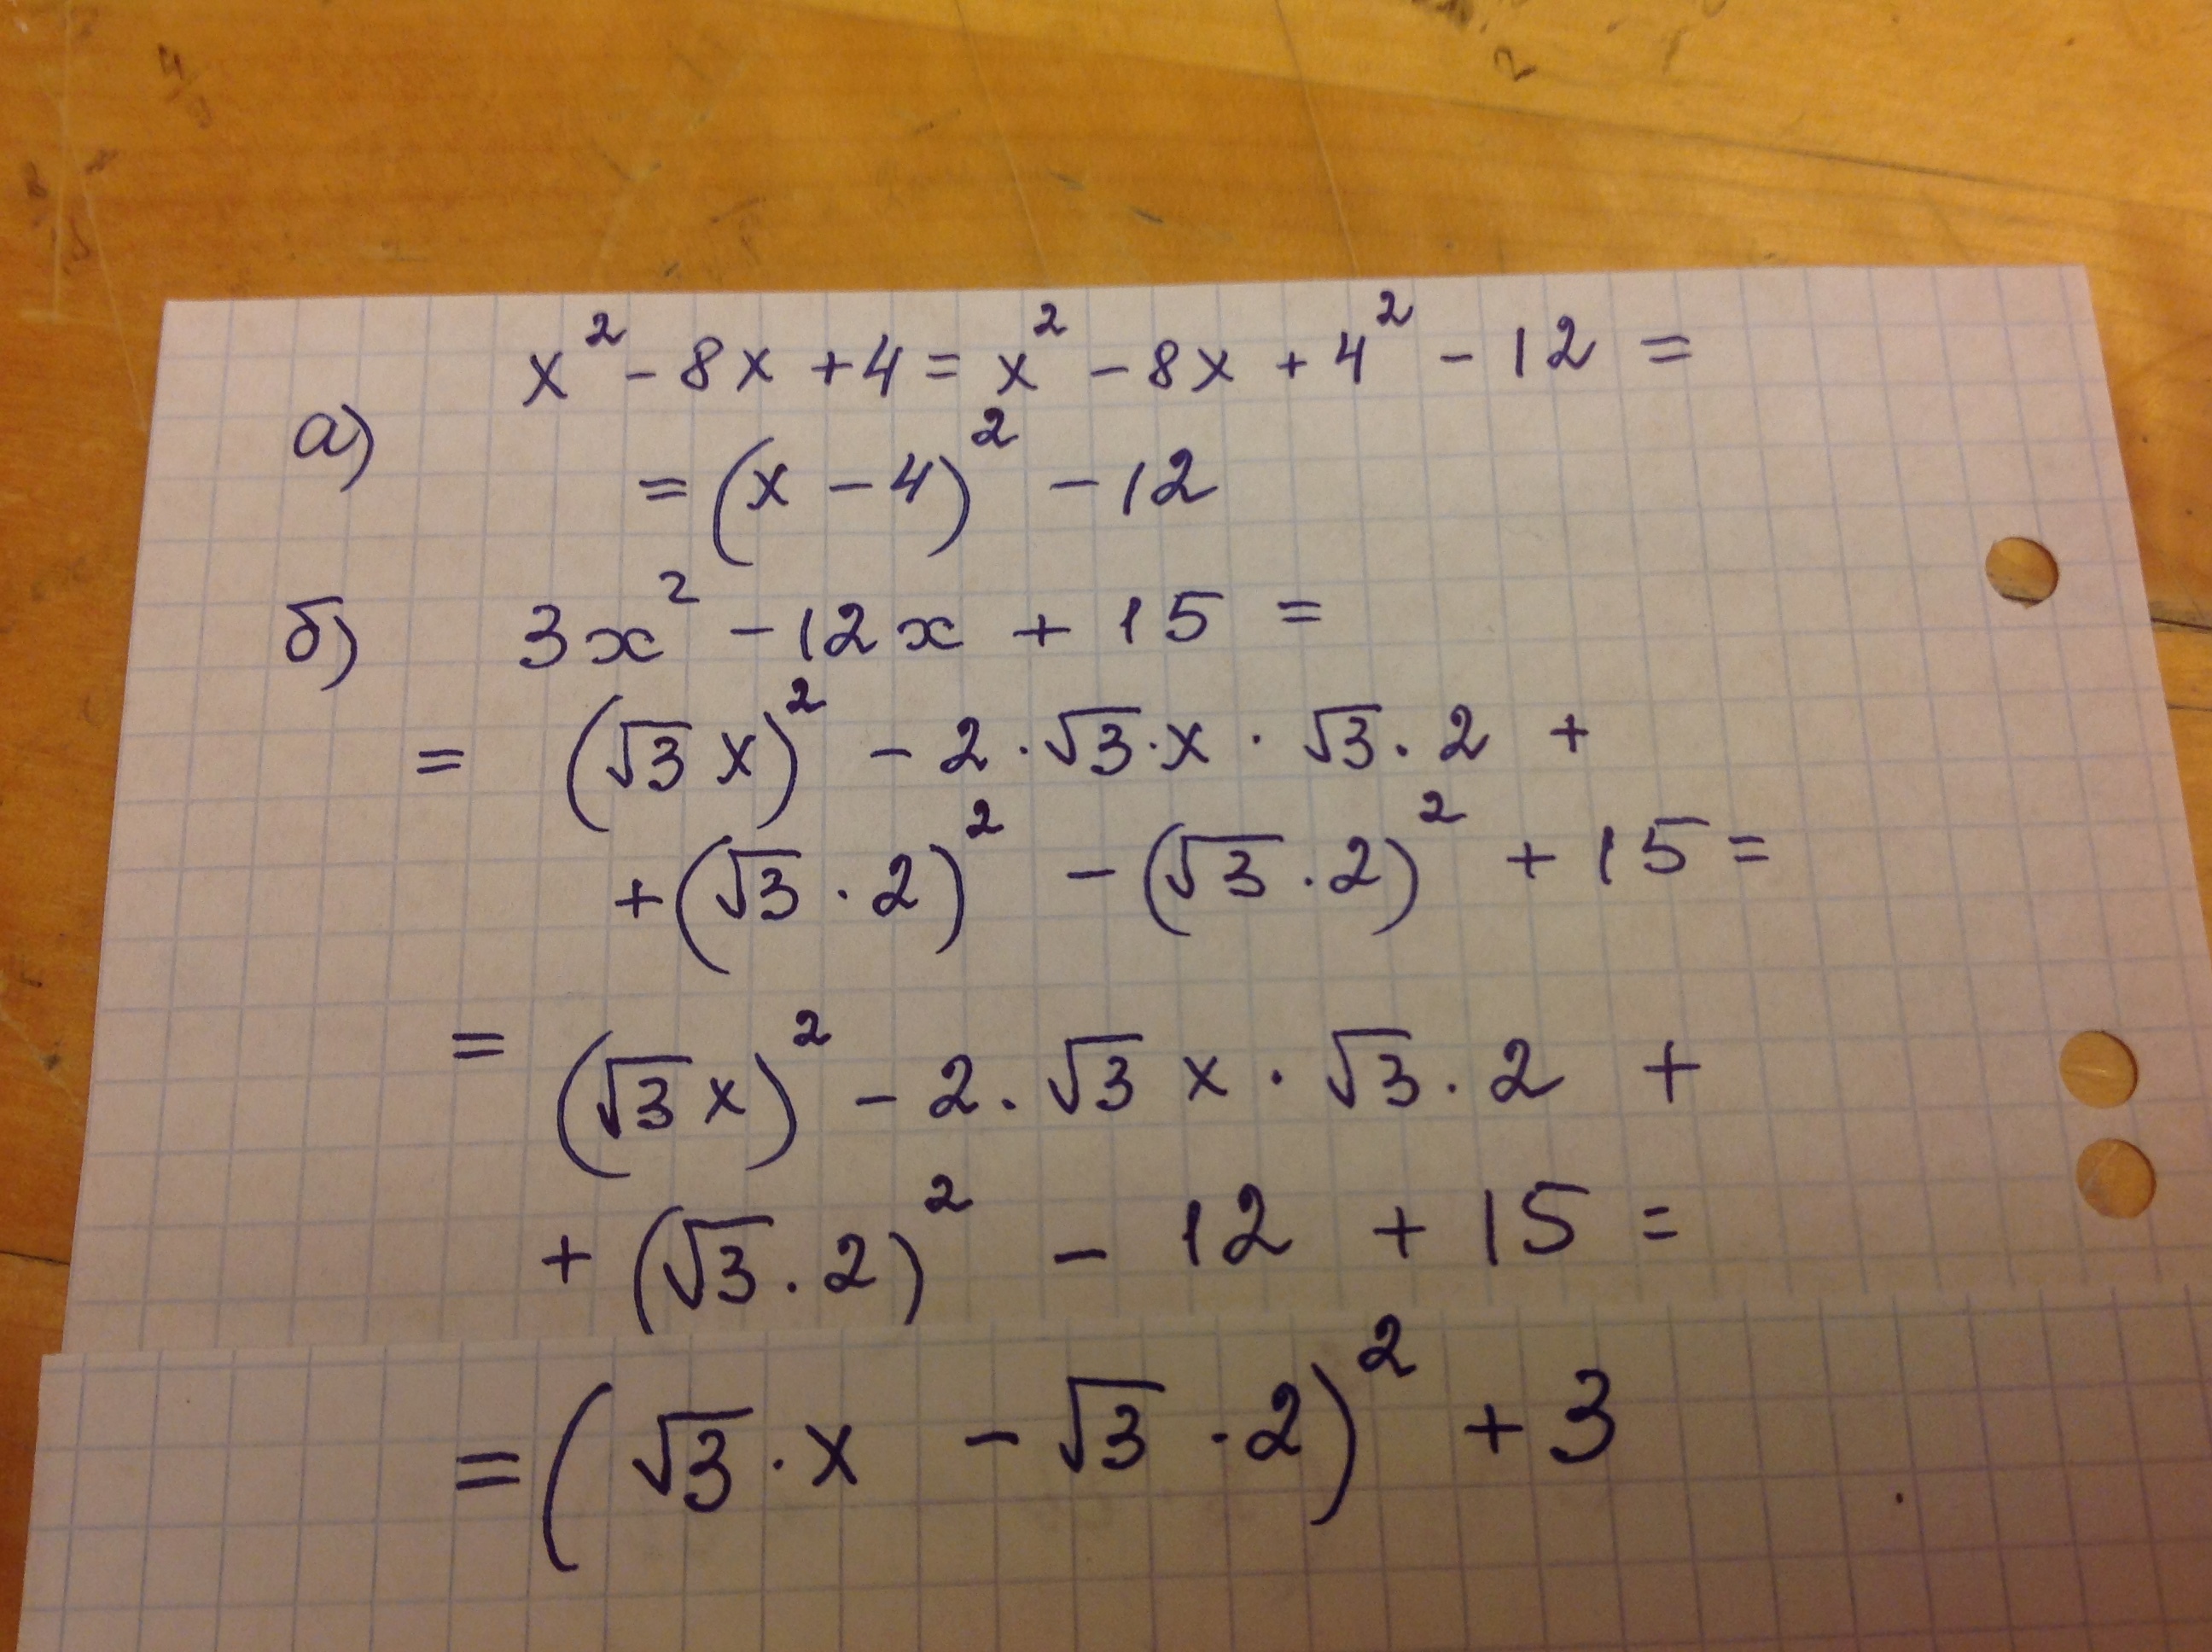 а) x² - 8x + 4 = x² - 8x + 4² - 12 =
= (x - 4)² - 12
б) 3x² - 12x + 15 =
= (√3 x)² - 2 · √3 · x · √3 · 2 +
+ (√3 · 2)² - (√3 · 2)² + 15 =
= (√3 x)² - 2 · √3 x · √3 · 2 +
+ (√3 · 2)² - 12 + 15 =
= (√3 · x - √3 · 2)² + 3